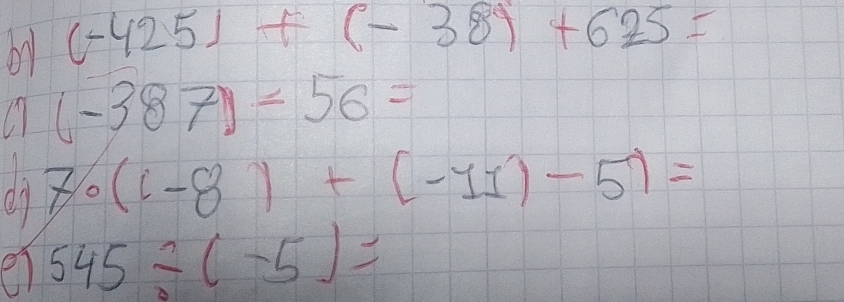 b) (-425) + (-38) + 625 =
c) (-387) - 56 =
d) 7·((-8) + (-11) - 5) =
e) 545 ÷ (-5) =